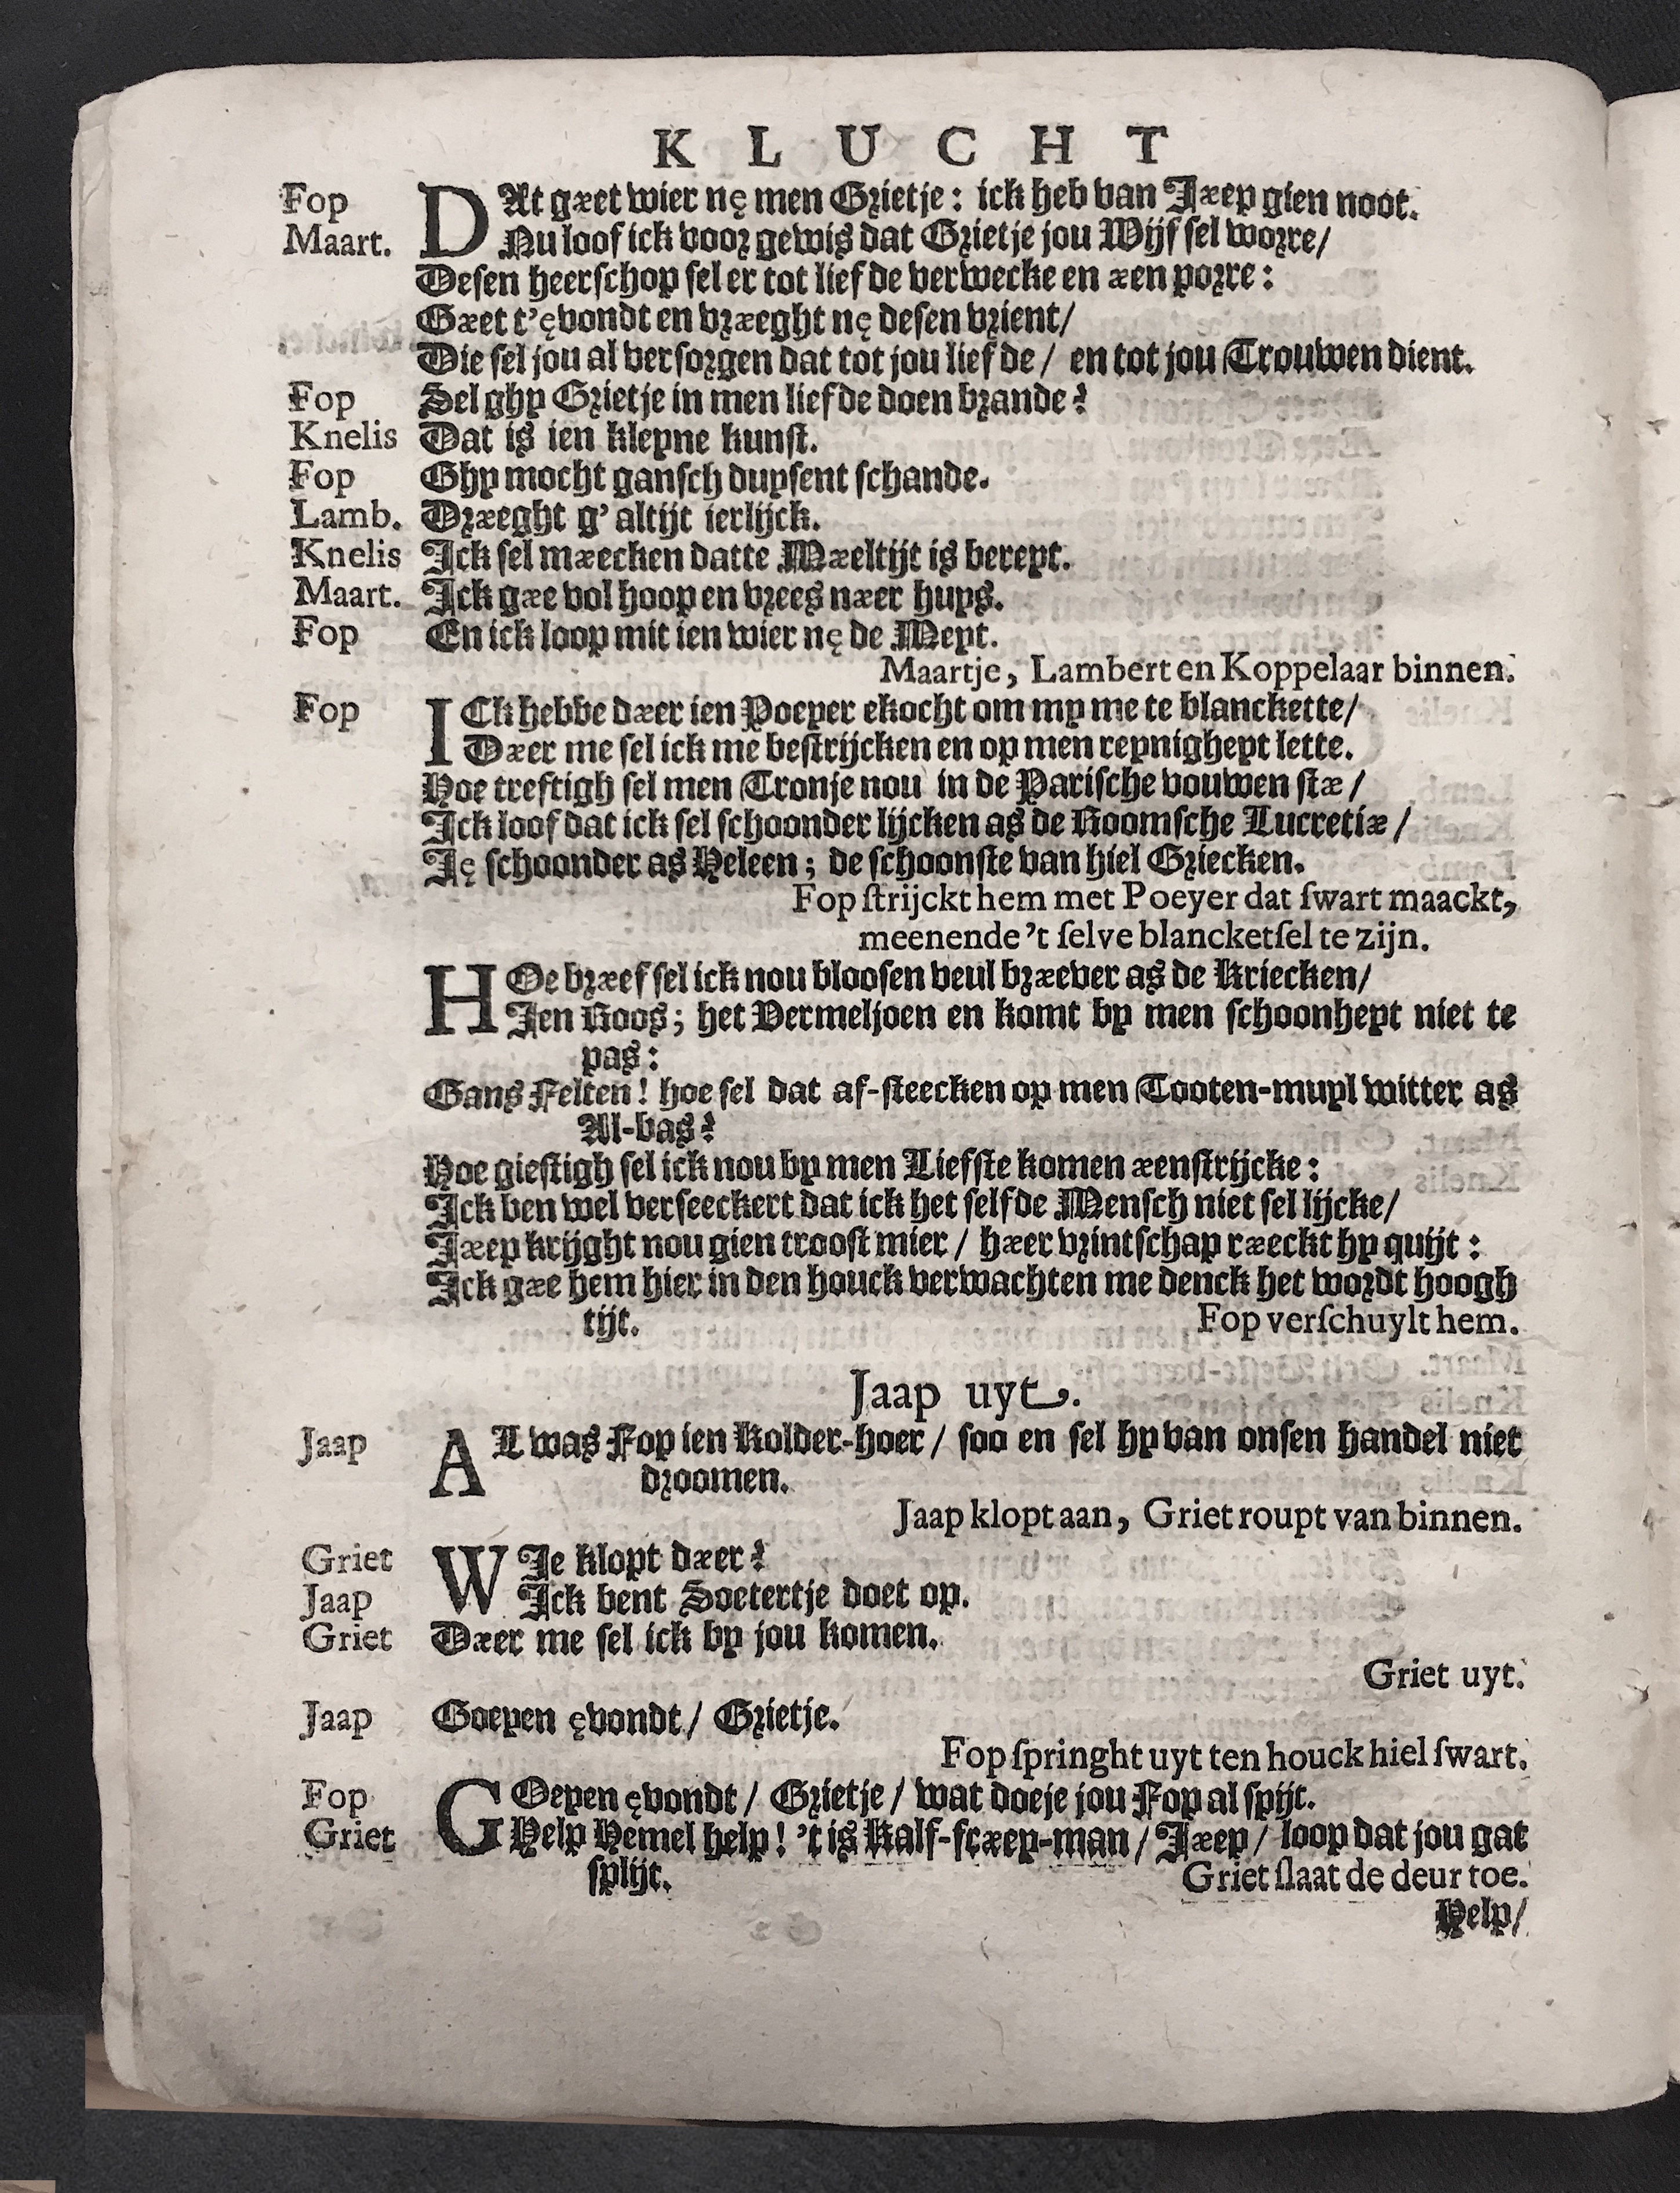 KLUCHT
Fop DAt gæet wier nę men Grietje: ick heb van Jæep gien noot.
Maart. Nu loof ick voor gewis dat Grietje jou Wijf sel worre/
Desen heerschop sel er tot liefde verwecke en æen porre:
Gæet t'ęvondt en vræeght nę desen vrient/
Die sel jou al versorgen dat tot jou liefde / en tot jou Trouwen dient.
Fop Sel ghy Grietje in men liefde doen brande?
Knelis Dat is ien kleyne kunst.
Fop Ghy mocht gansch duysent schande.
Lamb. Dræeght g' altijt ierlijck.
Knelis Ick sel mæecken datte Mæeltijt is bereyt.
Maart. Ick gæe vol hoop en vrees næer huys.
Fop En ick loop mit ien wier nę de Meyt.
Maartje, Lambert en Koppelaar binnen.
Fop ICk hebbe dæer ien Poeyer ekocht om my me te blanckette/
Dæer me sel ick me bestrijcken en op men reynigheyt lette.
Hoe treftigh sel men Tronje nou in de Parische vouwen stæ /
Ick loof dat ick sel schoonder lijcken as de Roomsche Lucretiæ /
Ję schoonder as Heleen; de schoonste van hiel Griecken.
Fop ſtrijckt hem met Poeyer dat ſwart maackt,
meenende 't ſelve blancketſel te zijn.
HOe bræef sel ick nou bloosen veul bræever as de Kriecken/
Ien Roos; het Vermeljoen en komt by men schoonheyt niet te
pas:
Gans Felten! hoe sel dat af-steecken op men Tooten-muyl witter as
Al-bas?
Hoe giestigh sel ick nou by men Liefste komen æenstrijcke:
Ick ben wel verseeckert dat ick het selfde Mensch niet sel lijcke/
Jæep krijght nou gien troost mier / hæer vrintschap ræeckt hy quijt:
Ick gæe hem hier in den houck verwachten me denck het wordt hoogh
tijt. Fop verſchuylt hem.
Jaap uyt.
Jaap AL was Fop ien Kolder-hoer / soo en sel hy van onsen handel niet
droomen.
Jaap klopt aan, Griet roupt van binnen.
Griet WIe klopt dæer?
Jaap Ick bent Soetertje doet op.
Griet Dæer me sel ick by jou komen.
Griet uyt.
Jaap Goeyen ęvondt/ Grietje.
Fop ſpringht uyt ten houck hiel ſwart.
Fop GOeyen ęvondt/ Grietje/ wat doeje jou Fop al spijt.
Griet Help Hemel help! 't is Kalf-fcæep-man/ Jæep/ loop dat jou gat
splijt. Griet ſlaat de deur toe.
Help/